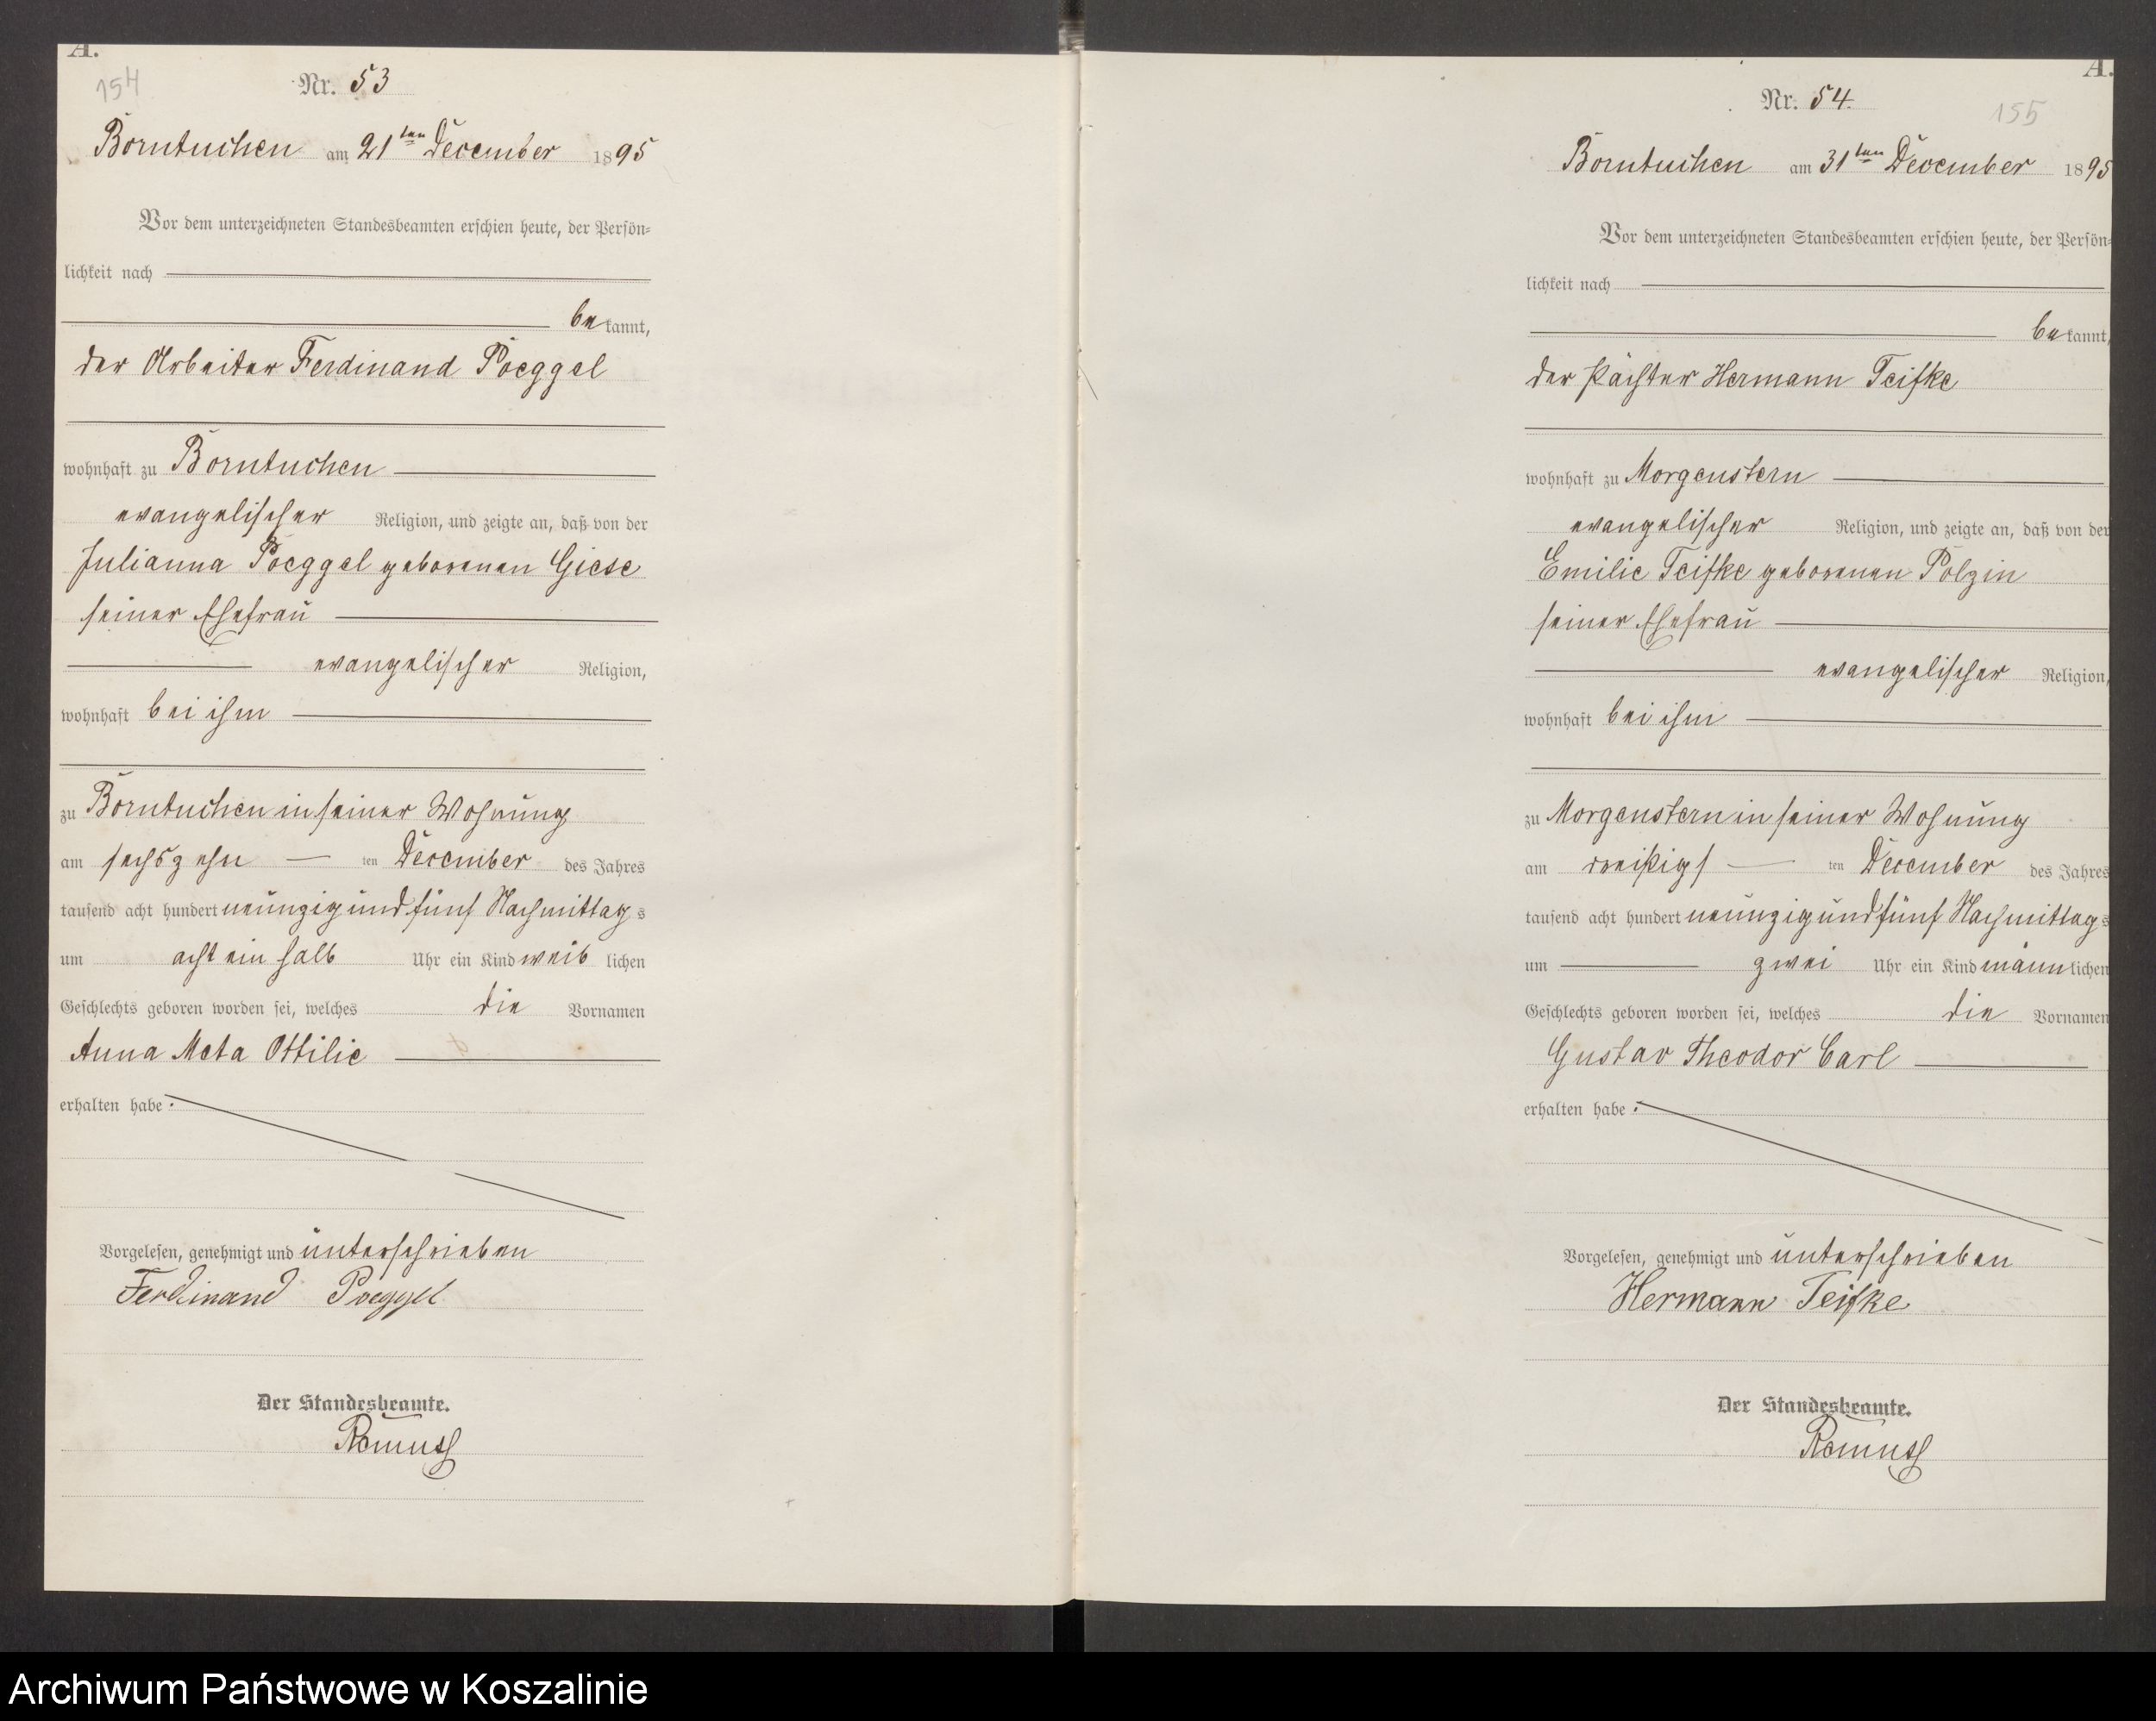 A.
154
Nr. 53
Borntuchen am 21ten December 1895
Vor dem unterzeichneten Standesbeamten erschien heute, der Persön=
lichkeit nach
bekannt,
der Arbeiter Ferdinand Poeggel
wohnhaft zu Borntuchen
evangelischer Religion, und zeigte an, daß von der
Julianna Poeggel geborenen Giese
seiner Ehefrau
evangelischer Religion,
wohnhaft bei ihm
zu Borntuchen in seiner Wohnung
am sechszehn ten December des Jahres
tausend acht hundert neunzig und fünf Nachmittags
um acht ein halb Uhr ein Kind weiblichen
Geschlechts geboren worden sei, welches die Vornamen
Anna Meta Ottilie
erhalten habe.
Vorgelesen, genehmigt und unterschrieben
Ferdinand Poeggel
Der Standesbeamte.
A.
Nr. 54.
155
Borntuchen am 31ten December 1895
Vor dem unterzeichneten Standesbeamten erschien heute, der Persön=
lichkeit nach
bekannt,
der Pächter Hermann Teifke
wohnhaft zu Morgenstern
evangelischer Religion, und zeigte an, daß von der
Emilie Teifke geborenen Polzin
seiner Ehefrau
evangelischer Religion,
wohnhaft bei ihm
zu Morgenstern in seiner Wohnung
am dreißigs ten December des Jahres
tausend acht hundert neunzig und fünf Nachmittags
um zwei Uhr ein Kind männlichen
Geschlechts geboren worden sei, welches die Vornamen
Gustav Theodor Carl
erhalten habe.
Vorgelesen, genehmigt und unterschrieben
Hermann Teifke
Der Standesbeamte.
Archiwum Państwowe w Koszalinie